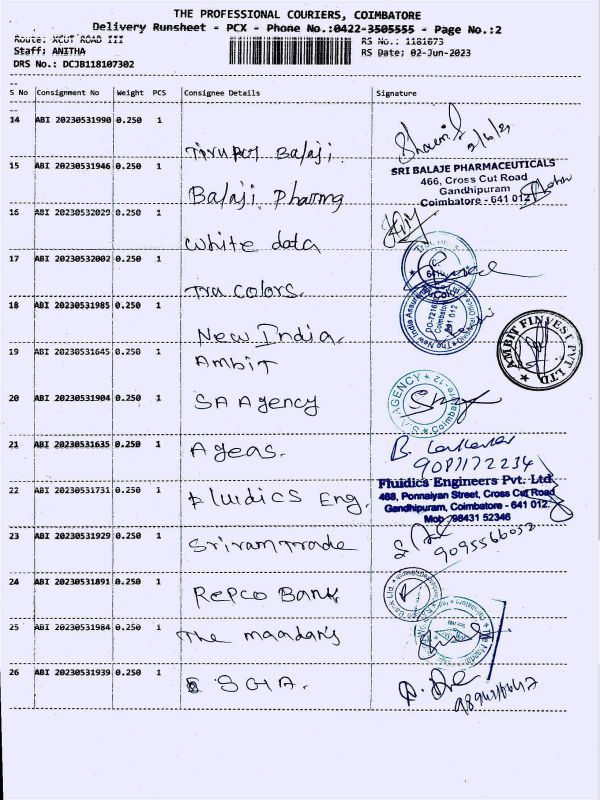 THE PROFESSIONAL COURIERS, COIMBATORE
Delivery Runsheet - PCX - Phone No.:0422-3505555 - Page No.:2
Route: XCUT ROAD III
RS No.: 1181073
Staff: ANITHA
RS Date: 02-Jun-2023
DRS No.: DCJB118107302
S No Consignment No Weight PCS Consignee Details Signature
14 ABI 20230531990 0.250 1
Tirupur Balaji
15 ABI 20230531946 0.250 1
SRI BALAJE PHARMACEUTICALS
466, Cross Cut Road
Gandhipuram
Coimbatore - 641 012
Balaji Pharma
16 ABI 20230532029 0.250 1
White data
17 ABI 20230532002 0.250 1
Tra colors.
18 ABI 20230531985 0.250 1
New India.
AMBIT FINVEST PVT LTD
19 ABI 20230531645 0.250 1
Ambit
20 ABI 20230531904 0.250 1
SA Agency
21 ABI 20230531635 0.250 1
Ageas.
22 ABI 20230531731 0.250 1
Fluidics Engineers Pvt. Ltd
468, Ponnaiyan Street, Cross Cut Road
Gandhipuram, Coimbatore - 641 012.
Mob 98431 52346
Fluidics Eng.
23 ABI 20230531929 0.250 1
9095566052
Sriram Trade
24 ABI 20230531891 0.250 1
Repco Bank
25 ABI 20230531984 0.250 1
The mandaris
26 ABI 20230531939 0.250 1
SGIA.